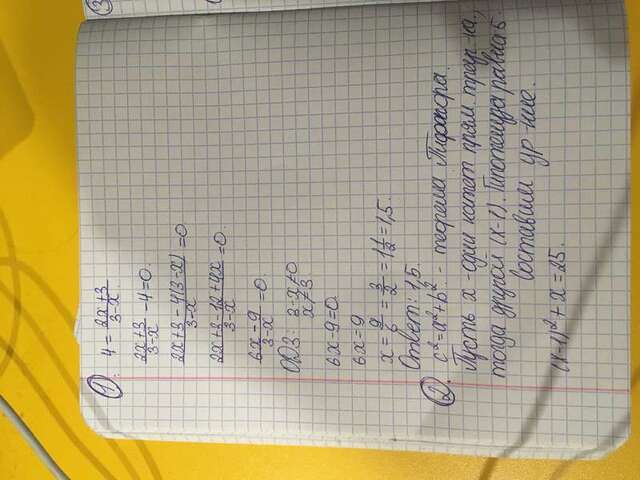 1. 4 = (2x+3)/(3-x)
(2x+3)/(3-x) - 4 = 0.
(2x+3-4(3-x))/(3-x) = 0
(2x+3-12+4x)/(3-x) = 0.
(6x-9)/(3-x) = 0.
ОДЗ: 3-x≠0
x≠3
6x-9=0.
6x=9
x = 9/6 = 3/2 = 1 1/2 = 1,5.
Ответ: 1,5.
2. c²=a²+b² - теорема Пифагора.
Пусть x - один катет прям. треуг-ка,
тогда другой (x-1). Гипотенуза равна 5.
Составим ур-ние.
(x-1)² + x = 25.
3